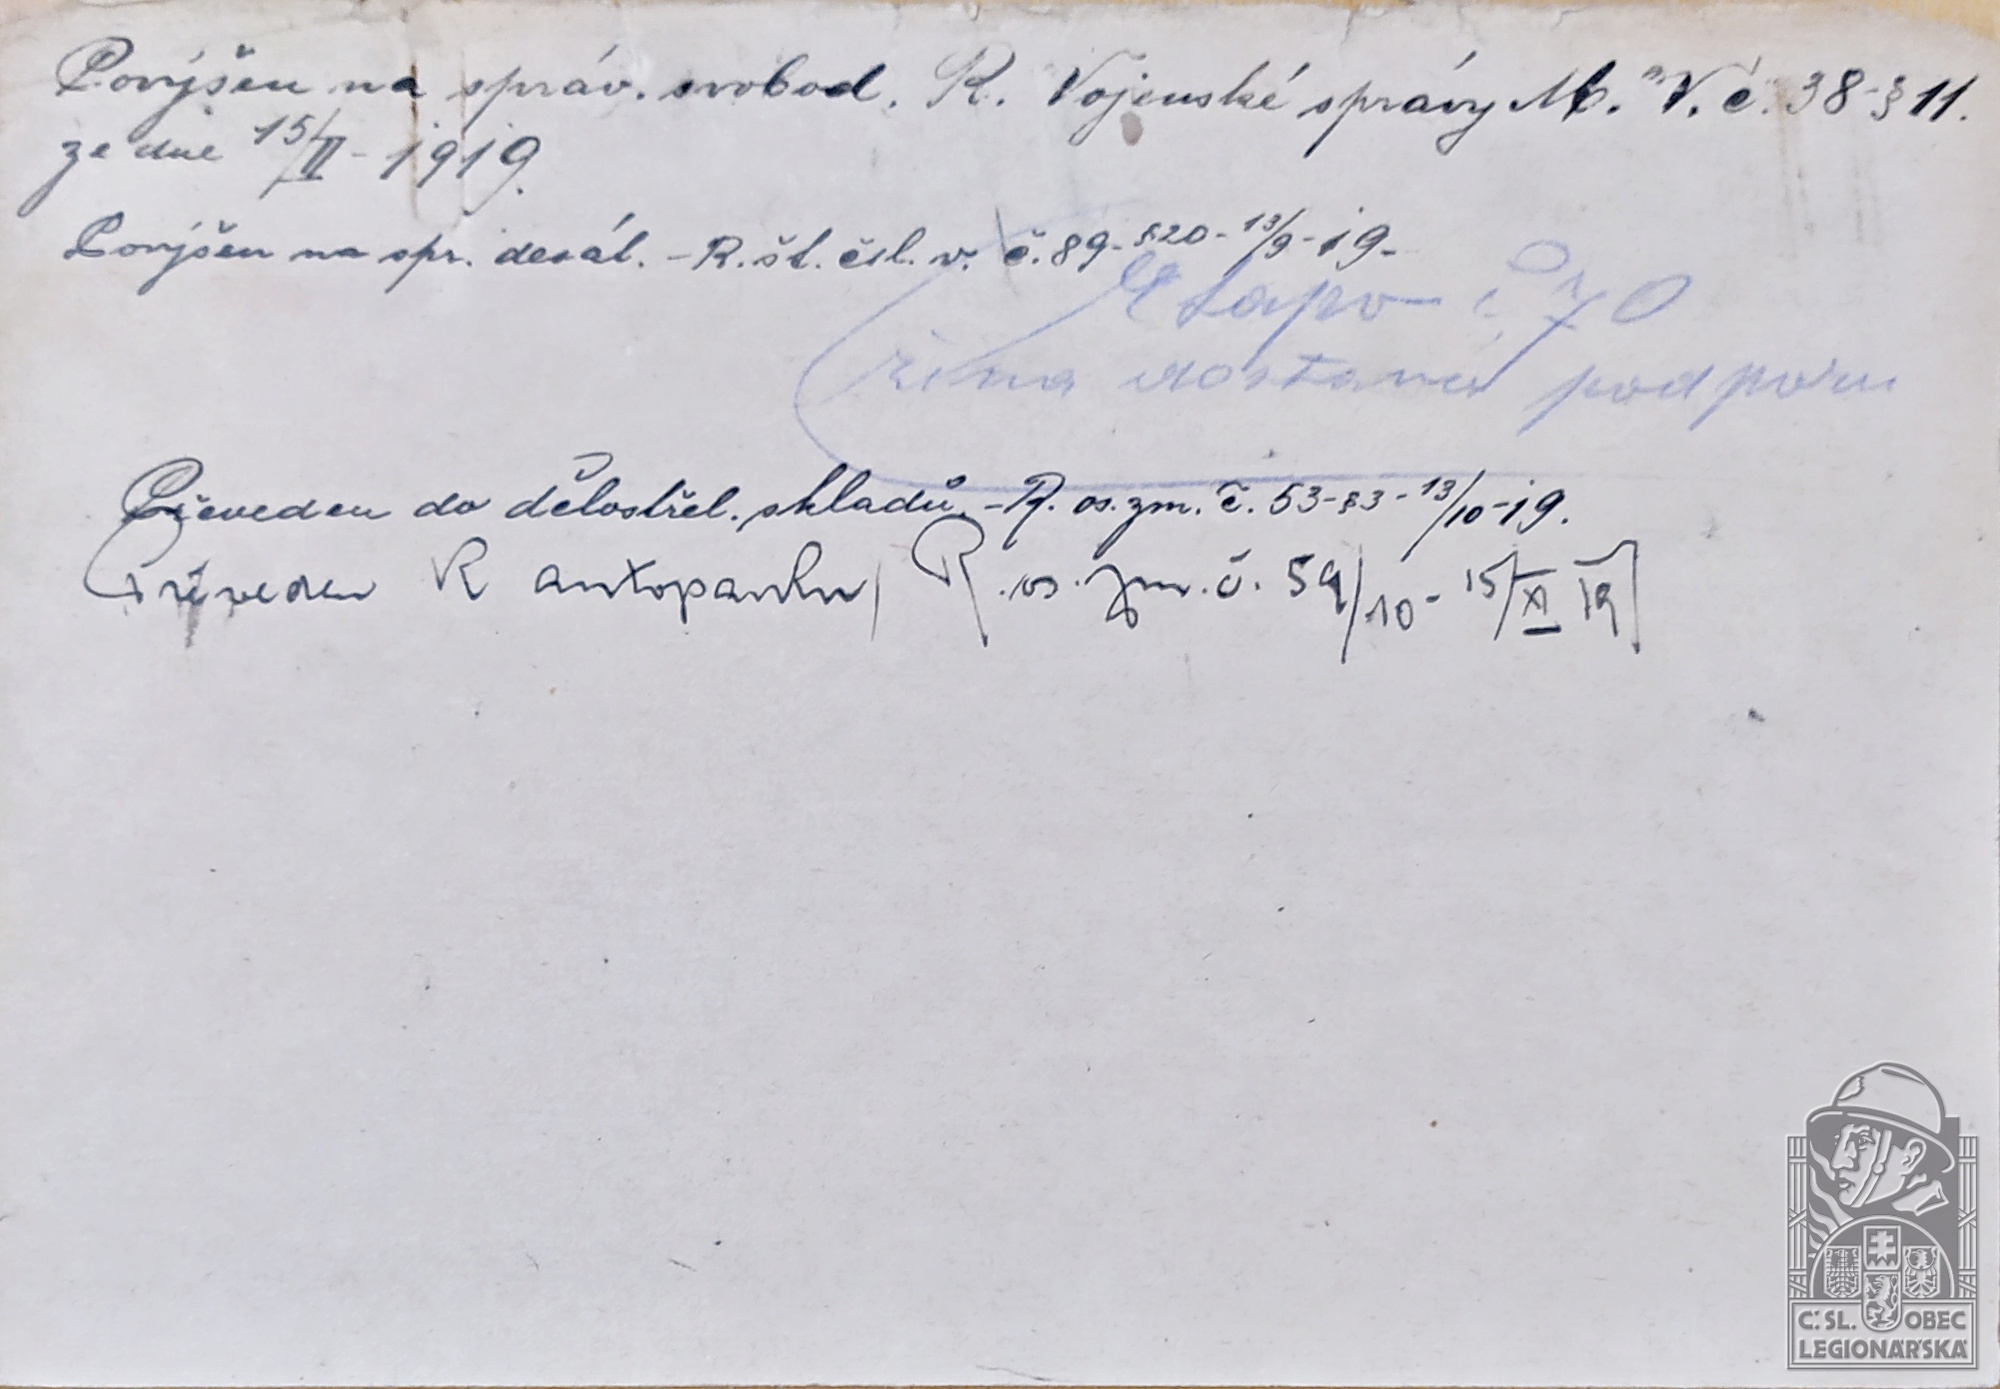 Povýšen na správ. svobod. R. Vojenské správy M. V. č. 38-§11.
ze dne 15/II - 1919.
Povýšen na spr. desát. - R. št. čsl. v. č. 89 - §20 - 13/9 - 19 -
Etapo č 70
žena dostává podporu
Převeden do dělostřel. skladů. - R. os. zm. č. 53 - §3 - 13/10 - 19.
Převeden k autoparku R. os. zm. č. 59/10 - 15/XI 19
Č.SL. OBEC
LEGIONÁŘSKÁ